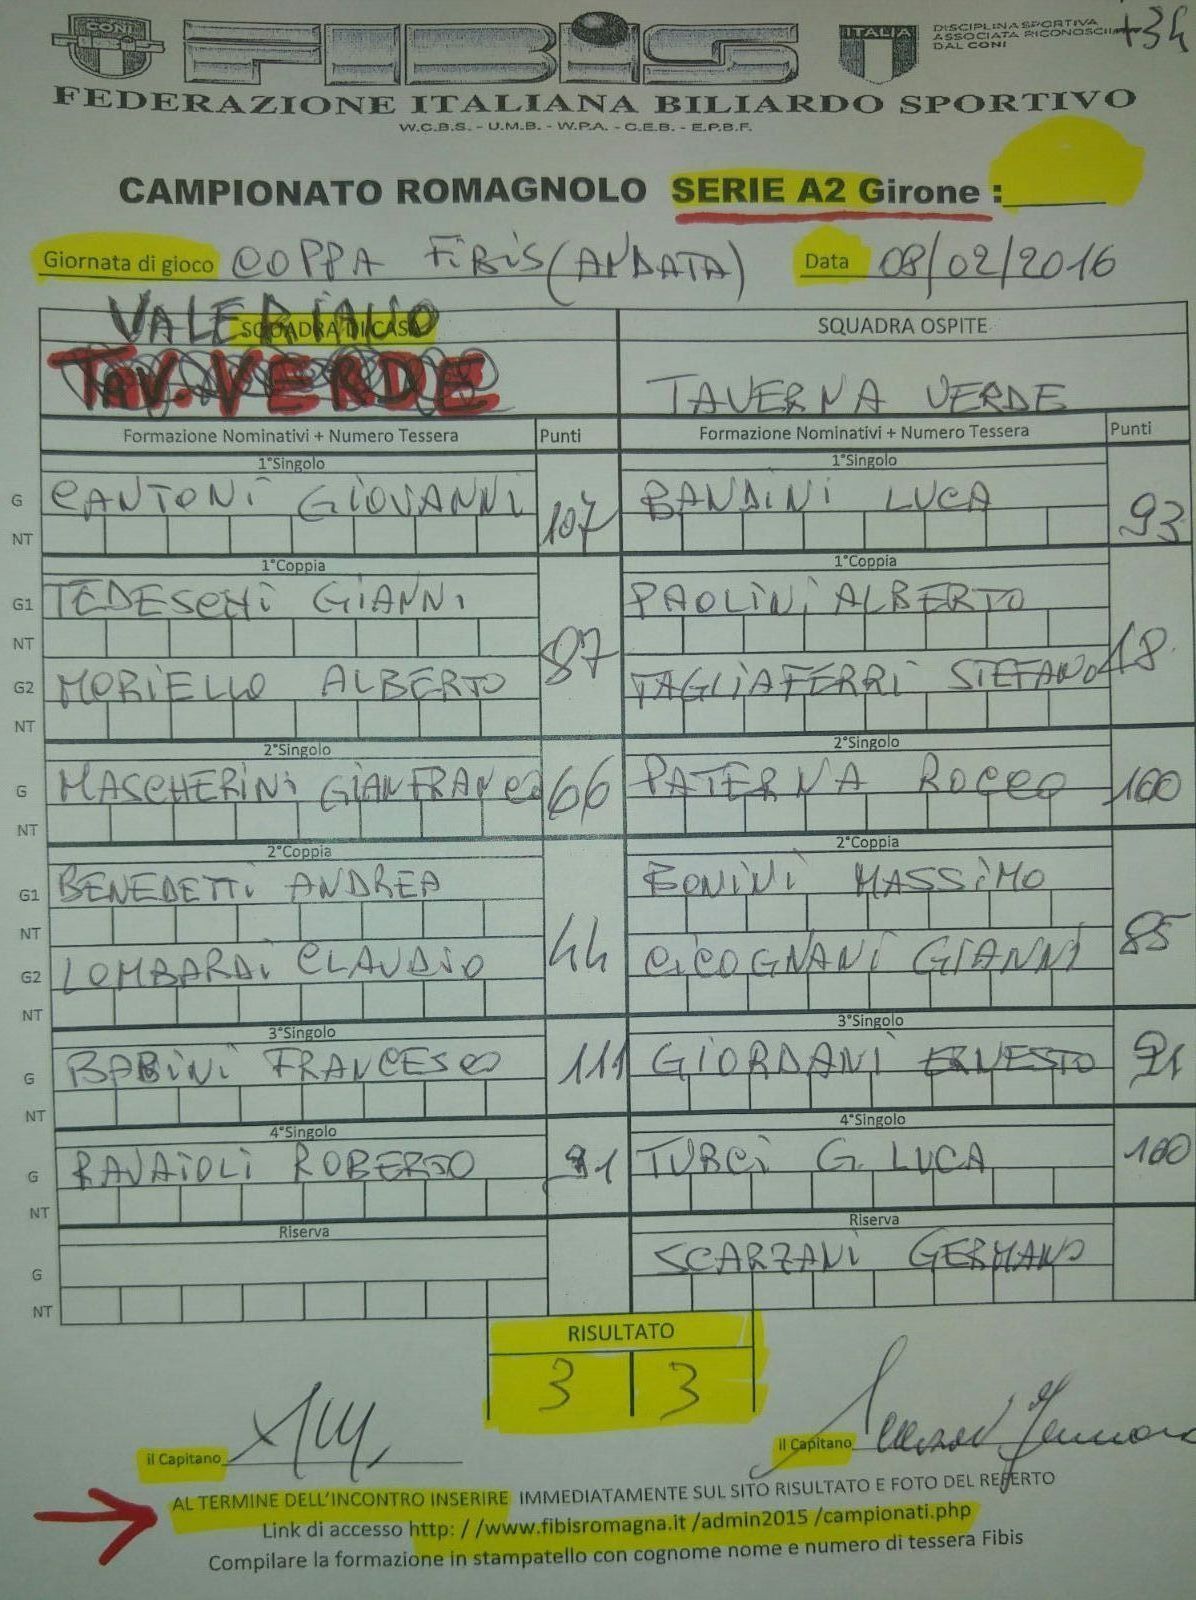 CONI
FIBIS
ITALIA
DISCIPLINA SPORTIVA
ASSOCIATA RICONOSCIU
DAL CONI
+34
FEDERAZIONE ITALIANA BILIARDO SPORTIVO
W.C.B.S. - U.M.B. - W.P.A. - C.E.B. - E.P.B.F.
CAMPIONATO ROMAGNOLO SERIE A2 Girone :
Giornata di gioco COPPA FiBiS (ANDATA) Data 08/02/2016
VALERIANO
SQUADRA DI CASA SQUADRA OSPITE
TAV. VERDE TAVERNA VERDE
Formazione Nominativi + Numero Tessera Punti Formazione Nominativi + Numero Tessera Punti
1°Singolo 1°Singolo
G CANTONi GiOVANNi 107 BANDiNi LUCA 93
NT
1°Coppia 1°Coppia
G1 TEDESCHi GiANNi PAOLiNi ALBERTO
NT 87 48
G2 MORiELLO ALBERTO TAGLiAFERRi STEFANO
NT
2°Singolo 2°Singolo
G MASCHERiNi GiANFRANCO 66 PATERNA ROCCO 100
NT
2°Coppia 2°Coppia
G1 BENEDETTi ANDREA BONiNi MASSiMO
NT 44 85
G2 LOMBARDi CLAUDiO CiCOGNANi GiANNi
NT
3°Singolo 3°Singolo
G BABiNi FRANCESCO 111 GiORDANi ERNESTO 91
NT
4°Singolo 4°Singolo
G RAVAiOLi ROBERTO TURCi G. LUCA 100
NT
Riserva Riserva
G SCARZANi GERMANO
NT
RISULTATO
3 3
il Capitano il Capitano
AL TERMINE DELL'INCONTRO INSERIRE IMMEDIATAMENTE SUL SITO RISULTATO E FOTO DEL REFERTO
Link di accesso http: / /www.fibisromagna.it /admin2015 /campionati.php
Compilare la formazione in stampatello con cognome nome e numero di tessera Fibis